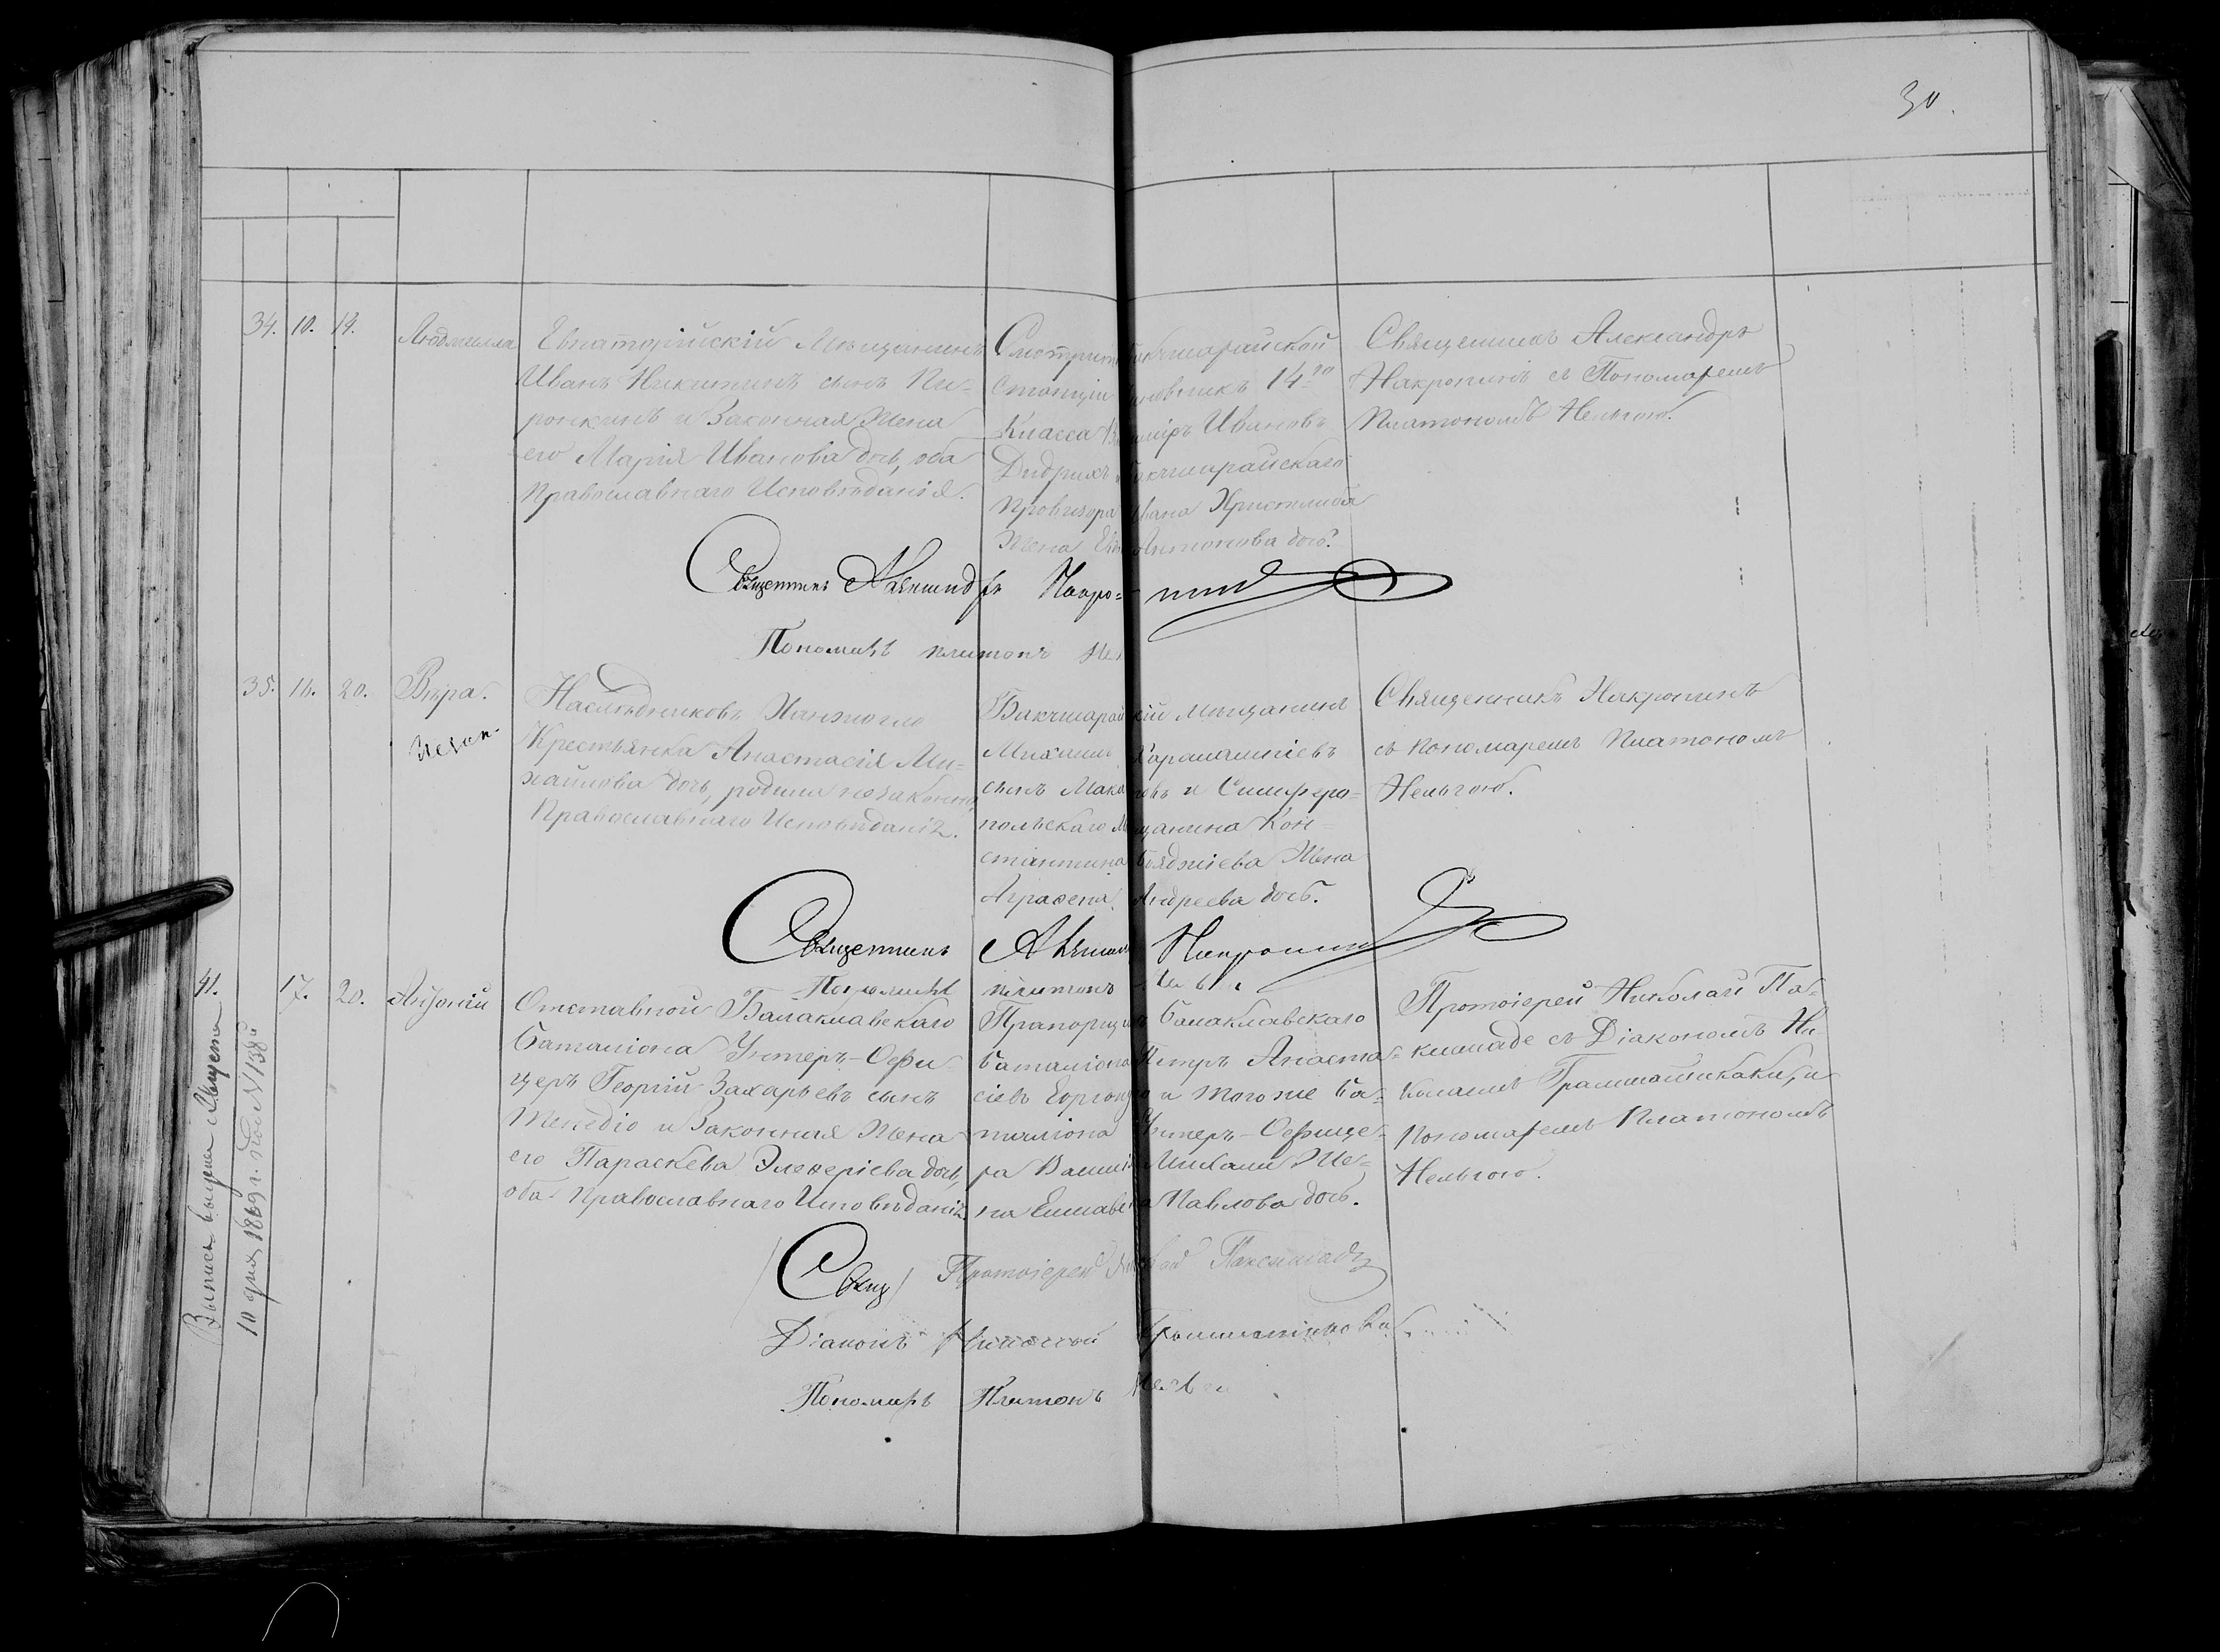 30.
34. 10. 14.
Людмилла
Евпаторійскій Мѣщанинъ
Иванъ Никитинъ сынъ Пи-
ронкинъ и Законная Жена
его Марія Иванова дочь, оба
Православнаго Исповѣданія.
Смотрит Бакчисарайской
Станціи иновникъ 14го
Класса иміръ Ивановъ
Дидрихъ Бакчисарайскаго
Провизора Ивана Христлиба
Жена Антонова дочь.
Священникъ Александръ
Накропинъ съ Пономаремъ
Платономъ
Священникъ Александръ Накро=пинъ
Пономарь Платонъ
35. 16. 20.
Вѣра.
Незак.
Наслѣдниковъ
Крестьянка Анастасія Ми-
хайлова дочь, родила незаконно,
Православнаго Исповѣданія.
Бакчисарайскій Мѣщанинъ
Михаилъ Харлампіевъ
сынъ и Симферо-
польскаго Мѣщанина Кон-
стантина Бояджіева Жена
Аграфена Андреева дочь.
Священникъ Накропинъ
съ Пономаремъ Платономъ
Священникъ Александръ Накропинъ
Пономарь Платонъ
41. 17. 20.
Антоній
Отставной Балаклавскаго
Баталіона Унтеръ-Офи-
церъ Георгій Захарьевъ сынъ
и Законная Жена
его Параскева Элевѳеріева дочь,
оба Православнаго Исповѣданія
Прапорщикъ Балаклавскаго
Баталіона Петръ Анаста-
сіевъ и того же Ба-
таліона Унтеръ-Офице-
ра Василія Жe-
на Елисавета Павлова дочь.
Протоіерей Николай Па-
съ Діакономъ Ни-
колаемъ Грамматикаки, и
Пономаремъ Платономъ
Свящ
Протоіерей Николай
Діаконъ Николай
Пономарь Платонъ
Выпись выдана
10 дня 1869 г. подъ N 138й